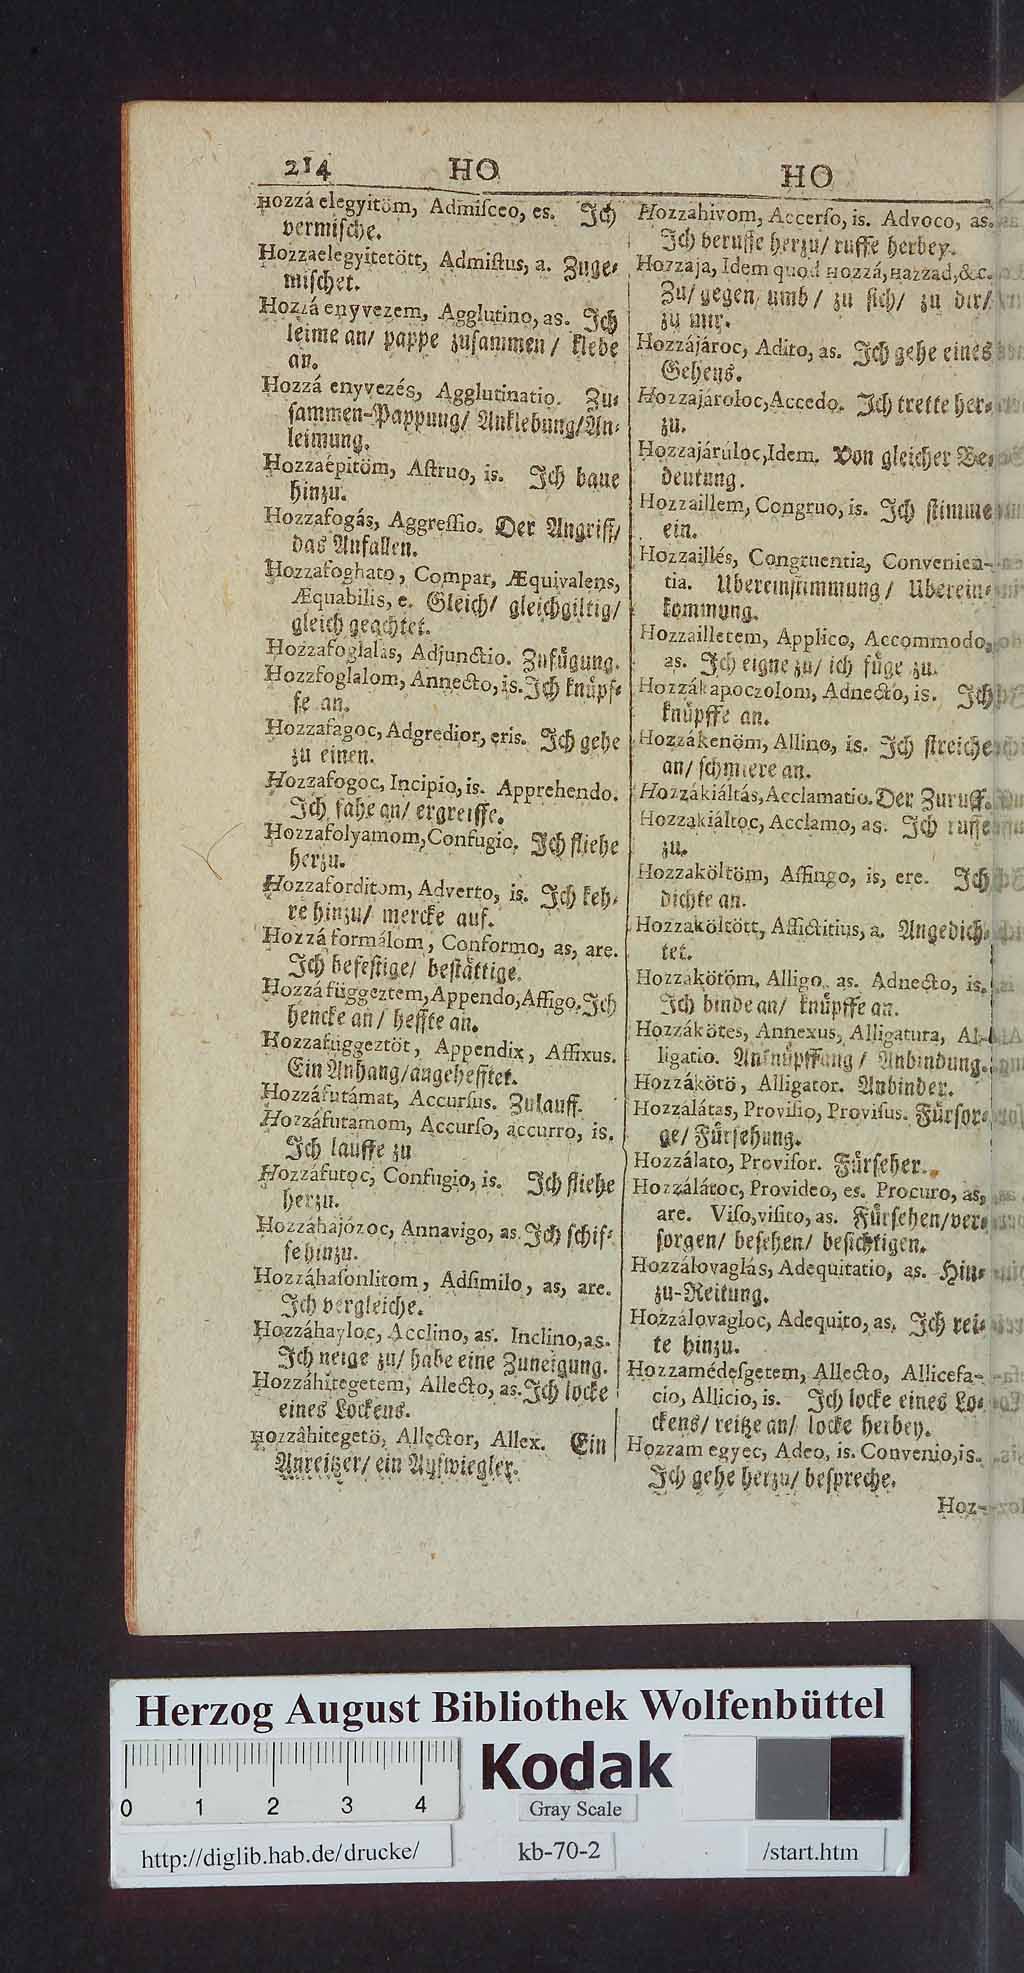 214 HO HO
Hozzá elegyitöm, Admiſceo, es. Ich
vermiſche.
Hozzaelegyitetött, Admiſtus, a. Zuge-
miſchet.
Hozzá enyvezem, Agglutino, as. Ich
leime an/ pappe zuſammen/ klebe
an.
Hozzá enyvezés, Agglutinatio. Zu-
ſammen-Pappung/ Anklebung/An-
leimung.
Hozzaépitöm, Aſtruo, is. Ich baue
hinzu.
Hozzafogás, Aggreſſio. Der Angriff/
das Anfallen.
Hozzafoghato, Compar, Æquivalens,
Æquabilis, e. Gleich/ gleichgiltig/
gleich geachtet.
Hozzafoglalás, Adjunctio. Zufügung.
Hozzfoglalom, Annecto, is. Ich knüpf-
fe an.
Hozzafagoc, Adgredior, eris. Ich gehe
zu einen.
Hozzafogoc, Incipio, is. Apprehendo.
Ich fahe an/ ergreiffe.
Hozzafolyamom, Confugio. Ich fliehe
herzu.
Hozzaforditom, Adverto, is. Ich keh-
re hinzu/ mercke auf.
Hozzá formálom, Conformo, as, are.
Ich befeſtige/ beſtättige.
Hozzá függeztem, Appendo, Affigo. Ich
hencke an/ heffte an.
Hozzafüggeztöt, Appendix, Affixus.
Ein Anhang/angehefftet.
Hozzáfutámat, Accurſus. Zulauff.
Hozzáfutamom, Accurſo, accurro, is.
Ich lauffe zu
Hozzáfutoc, Confugio, is. Ich fliehe
herzu.
Hozzáhajózoc, Annavigo, as. Ich ſchif-
fe hinzu.
Hozzáhaſonlitom, Adſimilo, as, are.
Ich vergleiche.
Hozzáhayloc, Acclino, as. Inclino, as.
Ich neige zu/ habe eine Zuneigung.
Hozzáhitegetem, Allecto, as. Ich locke
eines Lockens.
Hozzáhitegetö, Allector, Allex. Ein
Anreitzer/ ein Aufwiegler.
Hozzahivom, Accerſo, is. Advoco, as.
Ich beruffe herzu/ ruffe herbey.
Hozzaja, Idem quod Hozzá, Hazzad, &c.
Zu/ gegen/ umb/ zu ſich/ zu dir/
zu mir.
Hozzájároc, Adito, as. Ich gehe eines
Gehens.
Hozzajároloc, Accedo. Ich trette her-
zu.
Hozzajárúloc, Idem. Von gleicher Be-
deutung.
Hozzaillem, Congruo, is. Ich ſtimme
ein.
Hozzaillés, Congruentia, Convenien-
tia. Ubereinſtimmung/ Uberein-
kommung.
Hozzailletem, Applico, Accommodo,
as. Ich eigne zu/ ich füge zu.
Hozzákapoczolom, Adnecto, is. Ich
knüpffe an.
Hozzákenöm, Allino, is. Ich ſtreiche
an/ ſchmiere an.
Hozzákiáltás, Acclamatio. Der Zuruff.
Hozzakiáltoc, Acclamo, as. Ich ruffe
zu.
Hozzaköltöm, Affingo, is, ere. Ich
dichte an.
Hozzaköltött, Affictitius, a. Angedich-
tet.
Hozzakötöm, Alligo, as. Adnecto, is.
Ich binde an/ knüpffe an.
Hozzákötes, Annexus, Alligatura, Al-
ligatio. Anknüpffung/ Anbindung.
Hozzákötö, Alligator. Anbinder.
Hozzálátas, Proviſio, Proviſus. Fürſor-
ge/ Fürſehung.
Hozzálato, Proviſor. Fürſeher.
Hozzálátoc, Provideo, es. Procuro, as,
are. Viſo, viſito, as. Fürſehen/ver-
ſorgen/ beſehen/ beſichtigen.
Hozzálovaglás, Adequitatio, as. Hin-
zu-Reitung.
Hozzálovagloc, Adequito, as. Ich rei-
te hinzu.
Hozzamédeſgetem, Allecto, Allicefa-
cio, Allicio, is. Ich locke eines Lo-
ckens/ reitze an/ locke herbey.
Hozzam egyec, Adeo, is. Convenio, is.
Ich gehe herzu/ beſpreche.
Hoz-
Herzog August Bibliothek Wolfenbüttel
Kodak
Gray Scale
0 1 2 3 4
http://diglib.hab.de/drucke/ kb-70-2 /start.htm